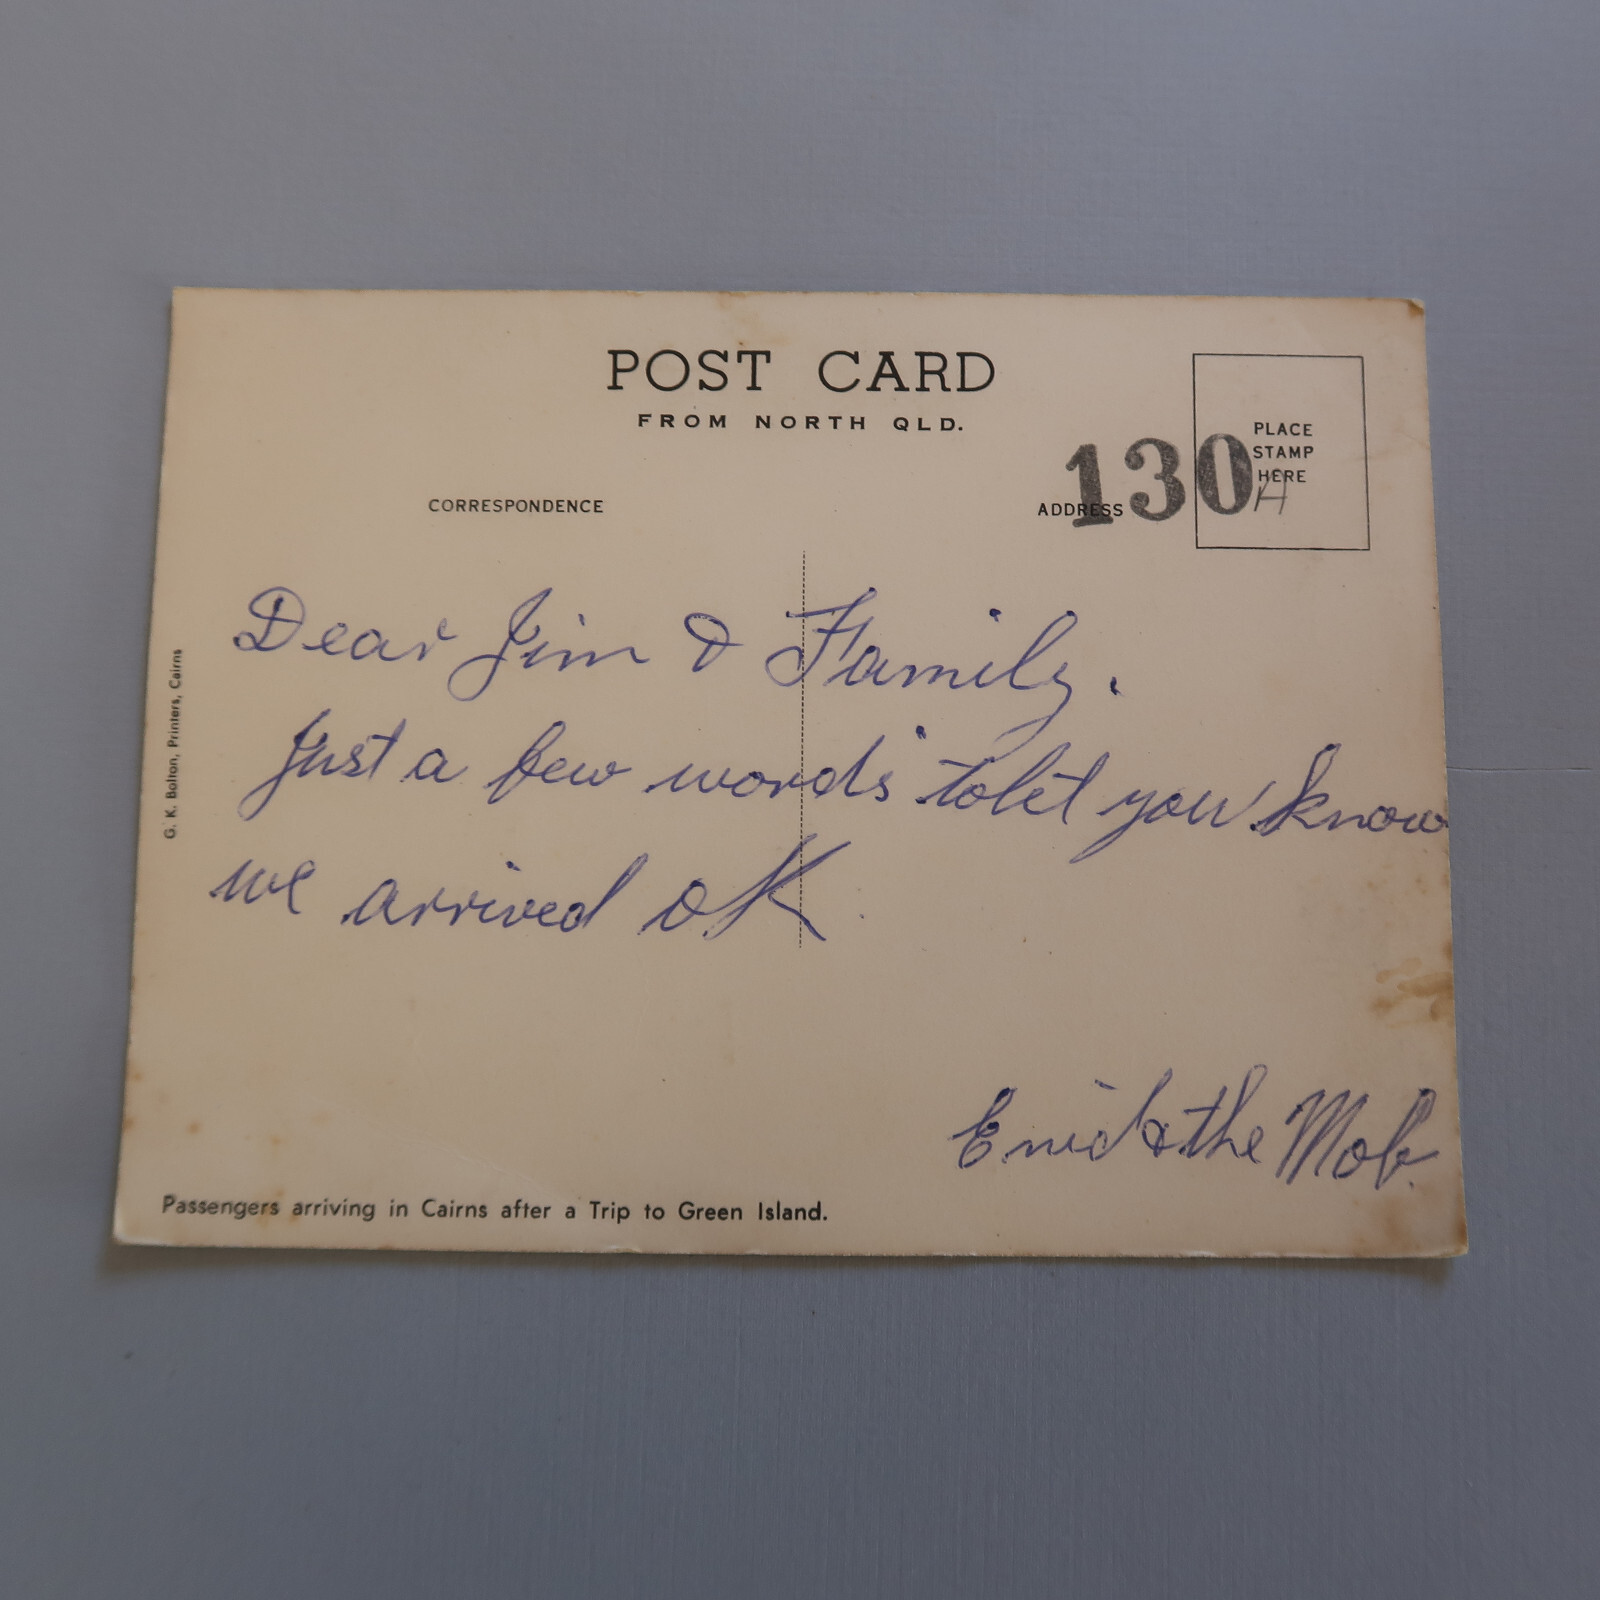 POST CARD
FROM NORTH QLD.
PLACE
STAMP
HERE
130
H
CORRESPONDENCE
ADDRESS
Dear Jim & Family.
Just a few words to let you know
we arrived OK.
Enid & the Mob.
G. K. Bolton, Printers, Cairns
Passengers arriving in Cairns after a Trip to Green Island.